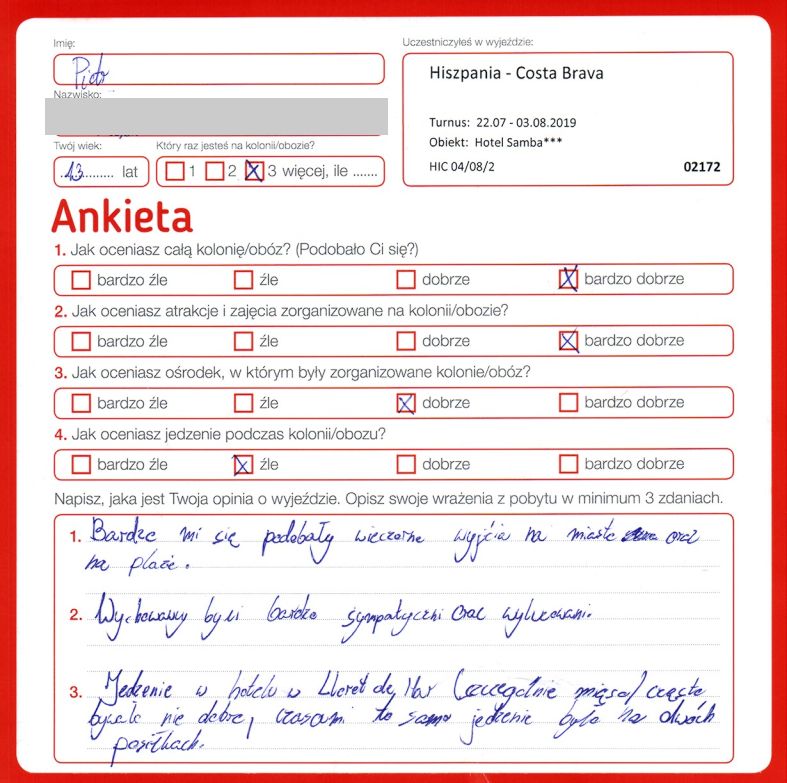 Imię:
Piotr
Uczestniczyłeś w wyjeździe:
Hiszpania - Costa Brava
Nazwisko:
Turnus: 22.07 - 03.08.2019
Obiekt: Hotel Samba***
HIC 04/08/2 02172
Twój wiek:
Który raz jesteś na kolonii/obozie?
..13........ lat
1 2 X 3 więcej, ile .......
Ankieta
1. Jak oceniasz całą kolonię/obóz? (Podobało Ci się?)
bardzo źle źle dobrze X bardzo dobrze
2. Jak oceniasz atrakcje i zajęcia zorganizowane na kolonii/obozie?
bardzo źle źle dobrze X bardzo dobrze
3. Jak oceniasz ośrodek, w którym były zorganizowane kolonie/obóz?
bardzo źle źle X dobrze bardzo dobrze
4. Jak oceniasz jedzenie podczas kolonii/obozu?
bardzo źle X źle dobrze bardzo dobrze
Napisz, jaka jest Twoja opinia o wyjeździe. Opisz swoje wrażenia z pobytu w minimum 3 zdaniach.
1. Bardzo mi się podobały wieczorne wyjścia na miasto oraz
na plaże.
2. Wychowawcy byli bardzo sympatyczni oraz wyluzowani.
3. Jedzenie w hotelu w Lloret de Mar (szczególnie mięso) często
było nie dobre, czasami to samo jedzenie było na dwóch
posiłkach.